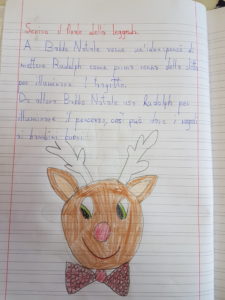 Scrivo il finale della leggenda.
A Babbo Natale venne un'idea: pensò di
mettere Rudolph come prima renna della slitta
per illuminare il tragitto.
Da allora Babbo Natale usa Rudolph per
illuminare il percorso, così può dare i regali
ai bambini buoni.